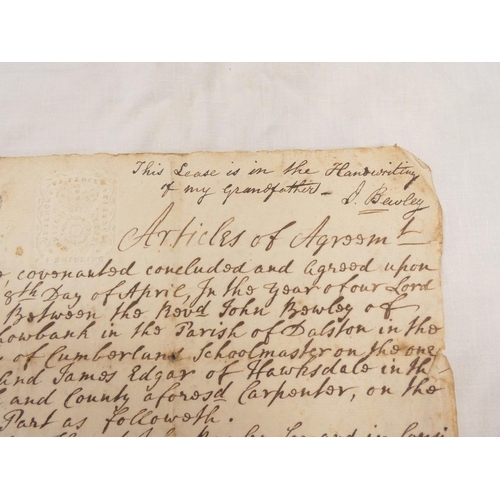 This Lease is in the Handwriting
of my Grandfather - J. Bewley
Articles of Agreemt
covenanted concluded and agreed upon
8th Day of April, In the Year of our Lord
Between the Revd John Bewley of
howbank in the Parish of Dalston in the
of Cumberland Schoolmaster on the one
and James Edgar of Hawksdale in th
and County aforesd Carpenter, on the
Part as followeth.